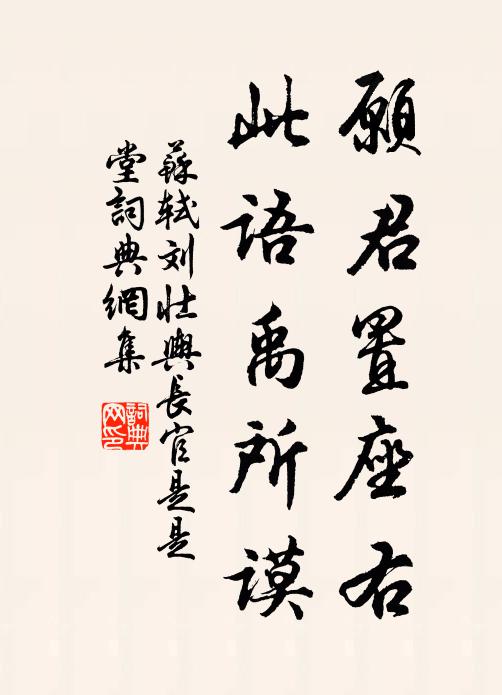 願君置座右
此語禹所謨
蘇軾刘壯輿長官是是
堂詞典網集
詞典网印